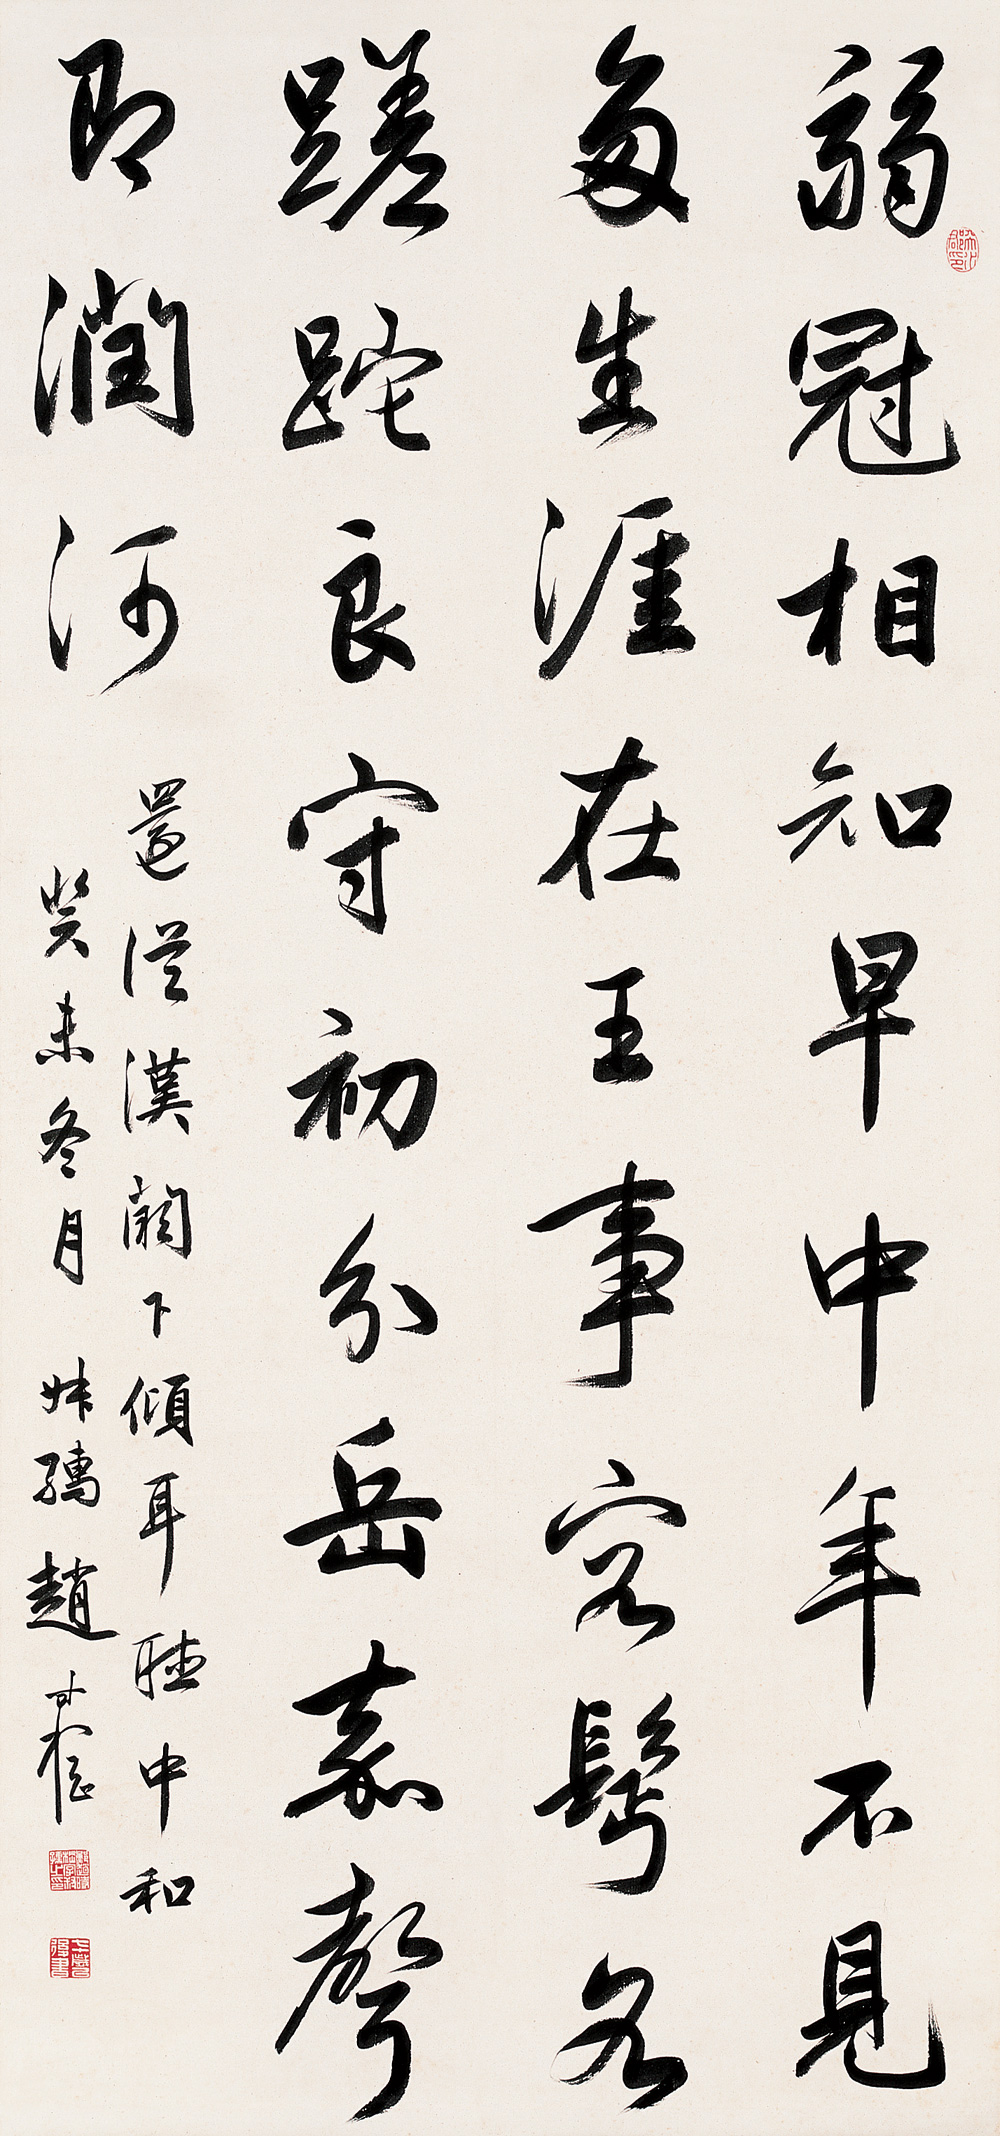 弱冠相知早中年不見
多生涯在王事客鬢各
蹉跎良守初分岳嘉聲
即潤河
還從漢闕下傾耳聽中和
癸未冬月 叔孺趙時棡